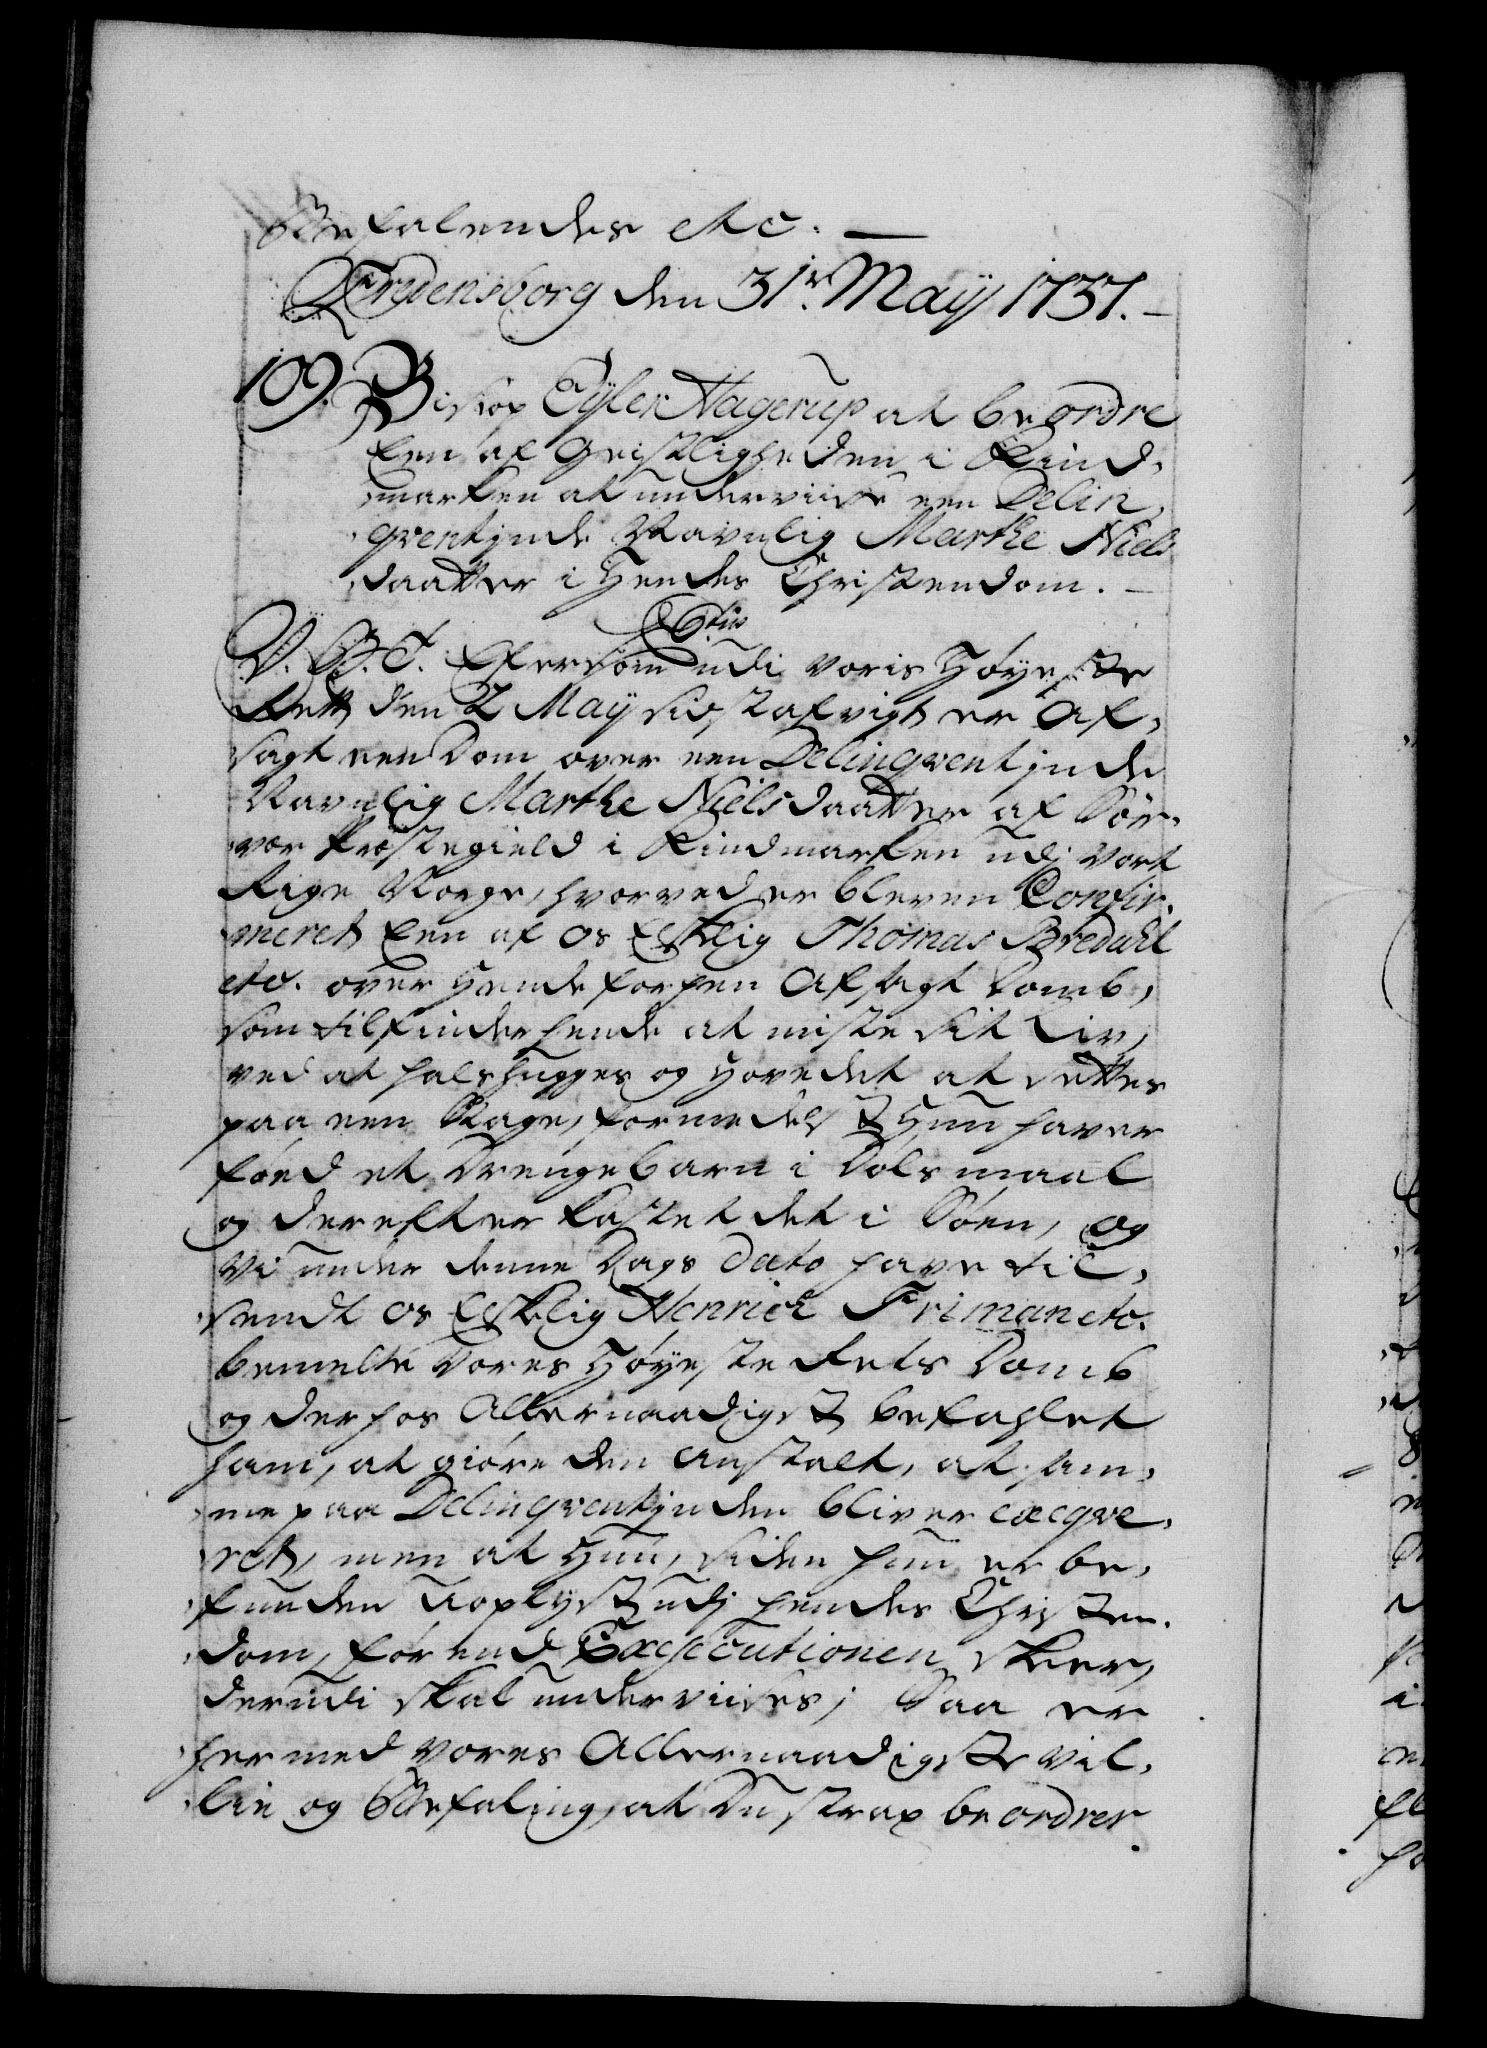 Befalendes etc. —
Fredensborg den 31te May 1737. –
109. Biskop Eyler Hagerup at beordre
Een af Geistligheden i Find-
marken at underviise een Delin-
qventinde Navnlig Marthe Niels
daatter i Hendes Christendom. –
V. G. T. Efersom udi voris Høyeste
Rett den 2 May sidst afvigt er Af-
sagt een Dom over een Delinqventinde
Navnlig Marthe Nielsdaatter af Sør-
vær Præstegield i Findmarken udj vort
Rige Norge, hvorved er bleven Confir-
meret Een af os Elskelig Thomas Bredahl
etc. over Hende forhen Afsagt Domb,
som tilfinder hende at miste sit Liv,
ved at halshugges og Hovedet at settes
paa een Stage, formedelst Hun haver
føed et Drengebarn i Dolsmaal
og derefter kastet det i Søen, og
Vi under denne Dags Dato have til-
sendt os Elskelig Henrich Friman etc.
bemelte Vores Høyeste Rets Domb
og derhos Allernaadigst befahlet
ham, at giøre den anstalt, at sam-
me paa Delinqventinden bliver exeqve-
ret, men at Hun, siden hun er be-
funden Uoplyst udj hendes Christen-
dom, før end Execcutionen skeer,
derudi skal underviises; Saa er
hermed Vores Allernaadigste Vil-
lie og Befaling, at Du strax beordrer